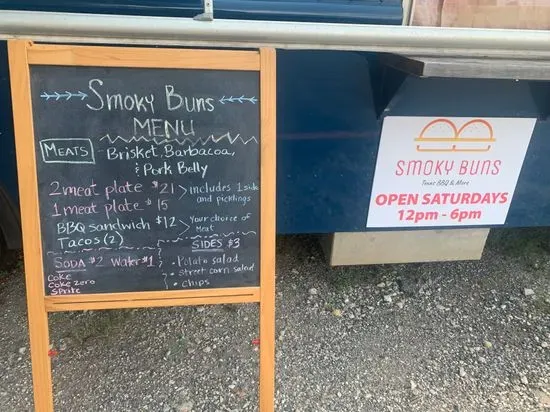 Smoky Buns
MENU
MEATS Brisket, Barbacoa,
& Pork Belly
2 meat plate $21 > includes 1 side
1 meat plate $15 and picklings
BBQ sandwich $12 > Your choice of
Tacos (2) Meat
SODA $2 Water $1
Coke
Coke zero
Sprite
SIDES $3
• Potato salad
• street corn salad
• chips
SMOKY BUNS
Texas BBQ & More
OPEN SATURDAYS
12pm - 6pm